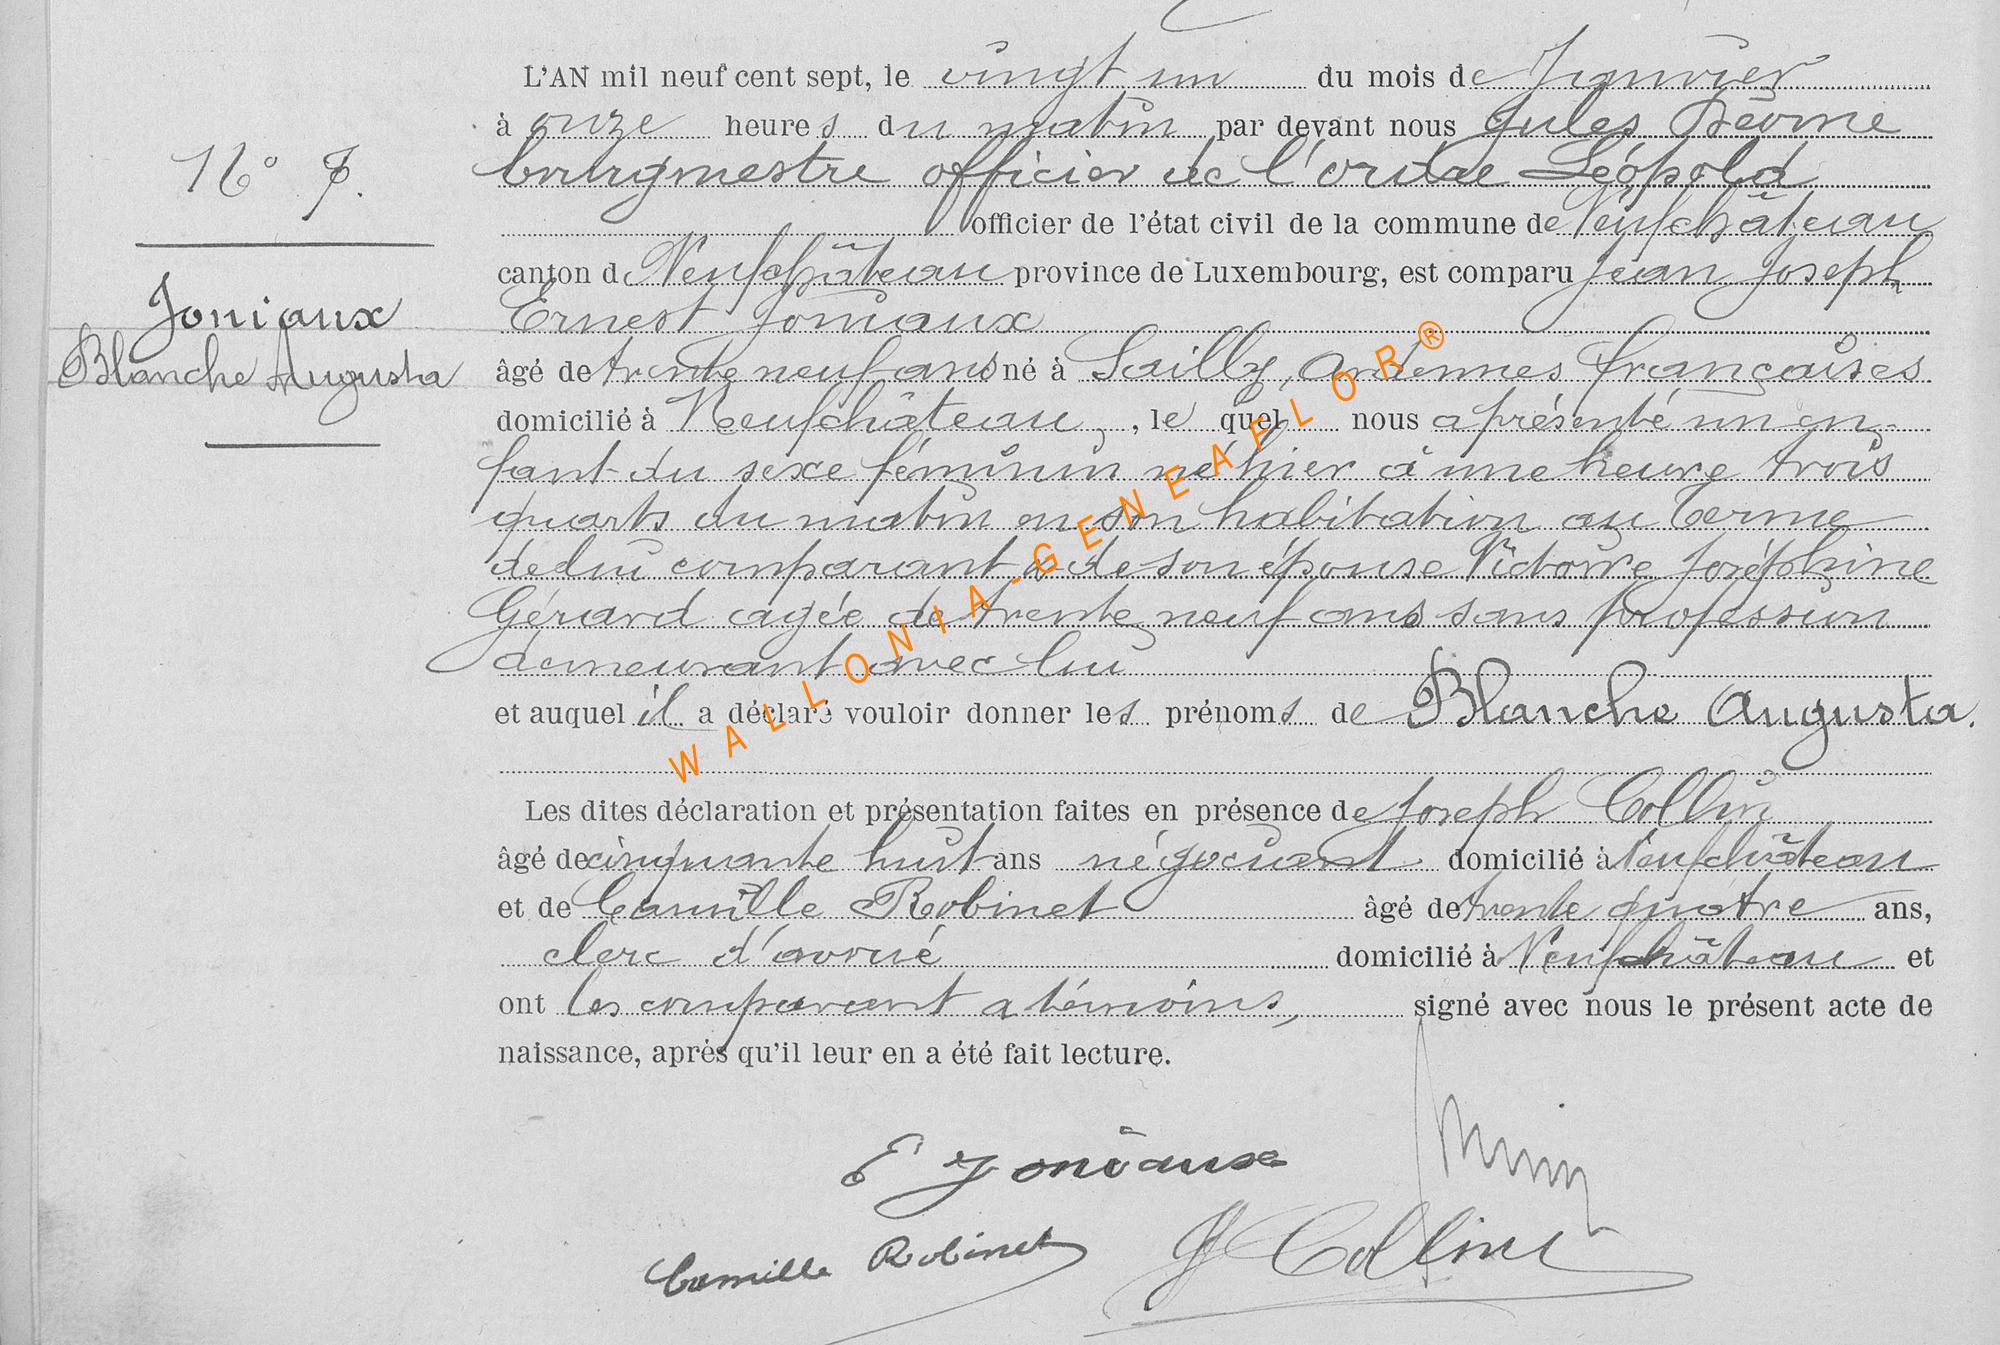 L'AN mil neuf cent sept, le vingt un du mois de Janvier
à onze heures du matin par devant nous Jules
bourgmestre officier de l'ordre Léopold
officier de l'état civil de la commune de Neufchâteau
canton de Neufchâteau province de Luxembourg, est comparu Jean Joseph
Ernest Joniaux
âgé de trente neuf ans né à Sailly, Ardennes françaises
domicilié à Neufchâteau, le quel nous a présenté un en-
fant du sexe féminin né hier à une heure trois
quarts du matin en son habitation au Terme
de lui comparant & de son épouse Victoire Joséphine
Gérard agée de trente neuf ans sans profession
demeurant avec lui
et auquel il a déclaré vouloir donner les prénoms de Blanche Augusta.
Les dites déclaration et présentation faites en présence de Joseph Collin
âgé de cinquante huit ans négociant domicilié à Neufchâteau
et de Camille Robinet âgé de trente quatre ans,
clerc d'avoué domicilié à Neufchâteau et
ont les comparant & témoins, signé avec nous le présent acte de
naissance, après qu'il leur en a été fait lecture.
N°
Joniaux
Blanche Augusta
E Joniaux
Camille Robinet
J Collin
WALLONIA-GENEAFLOR®